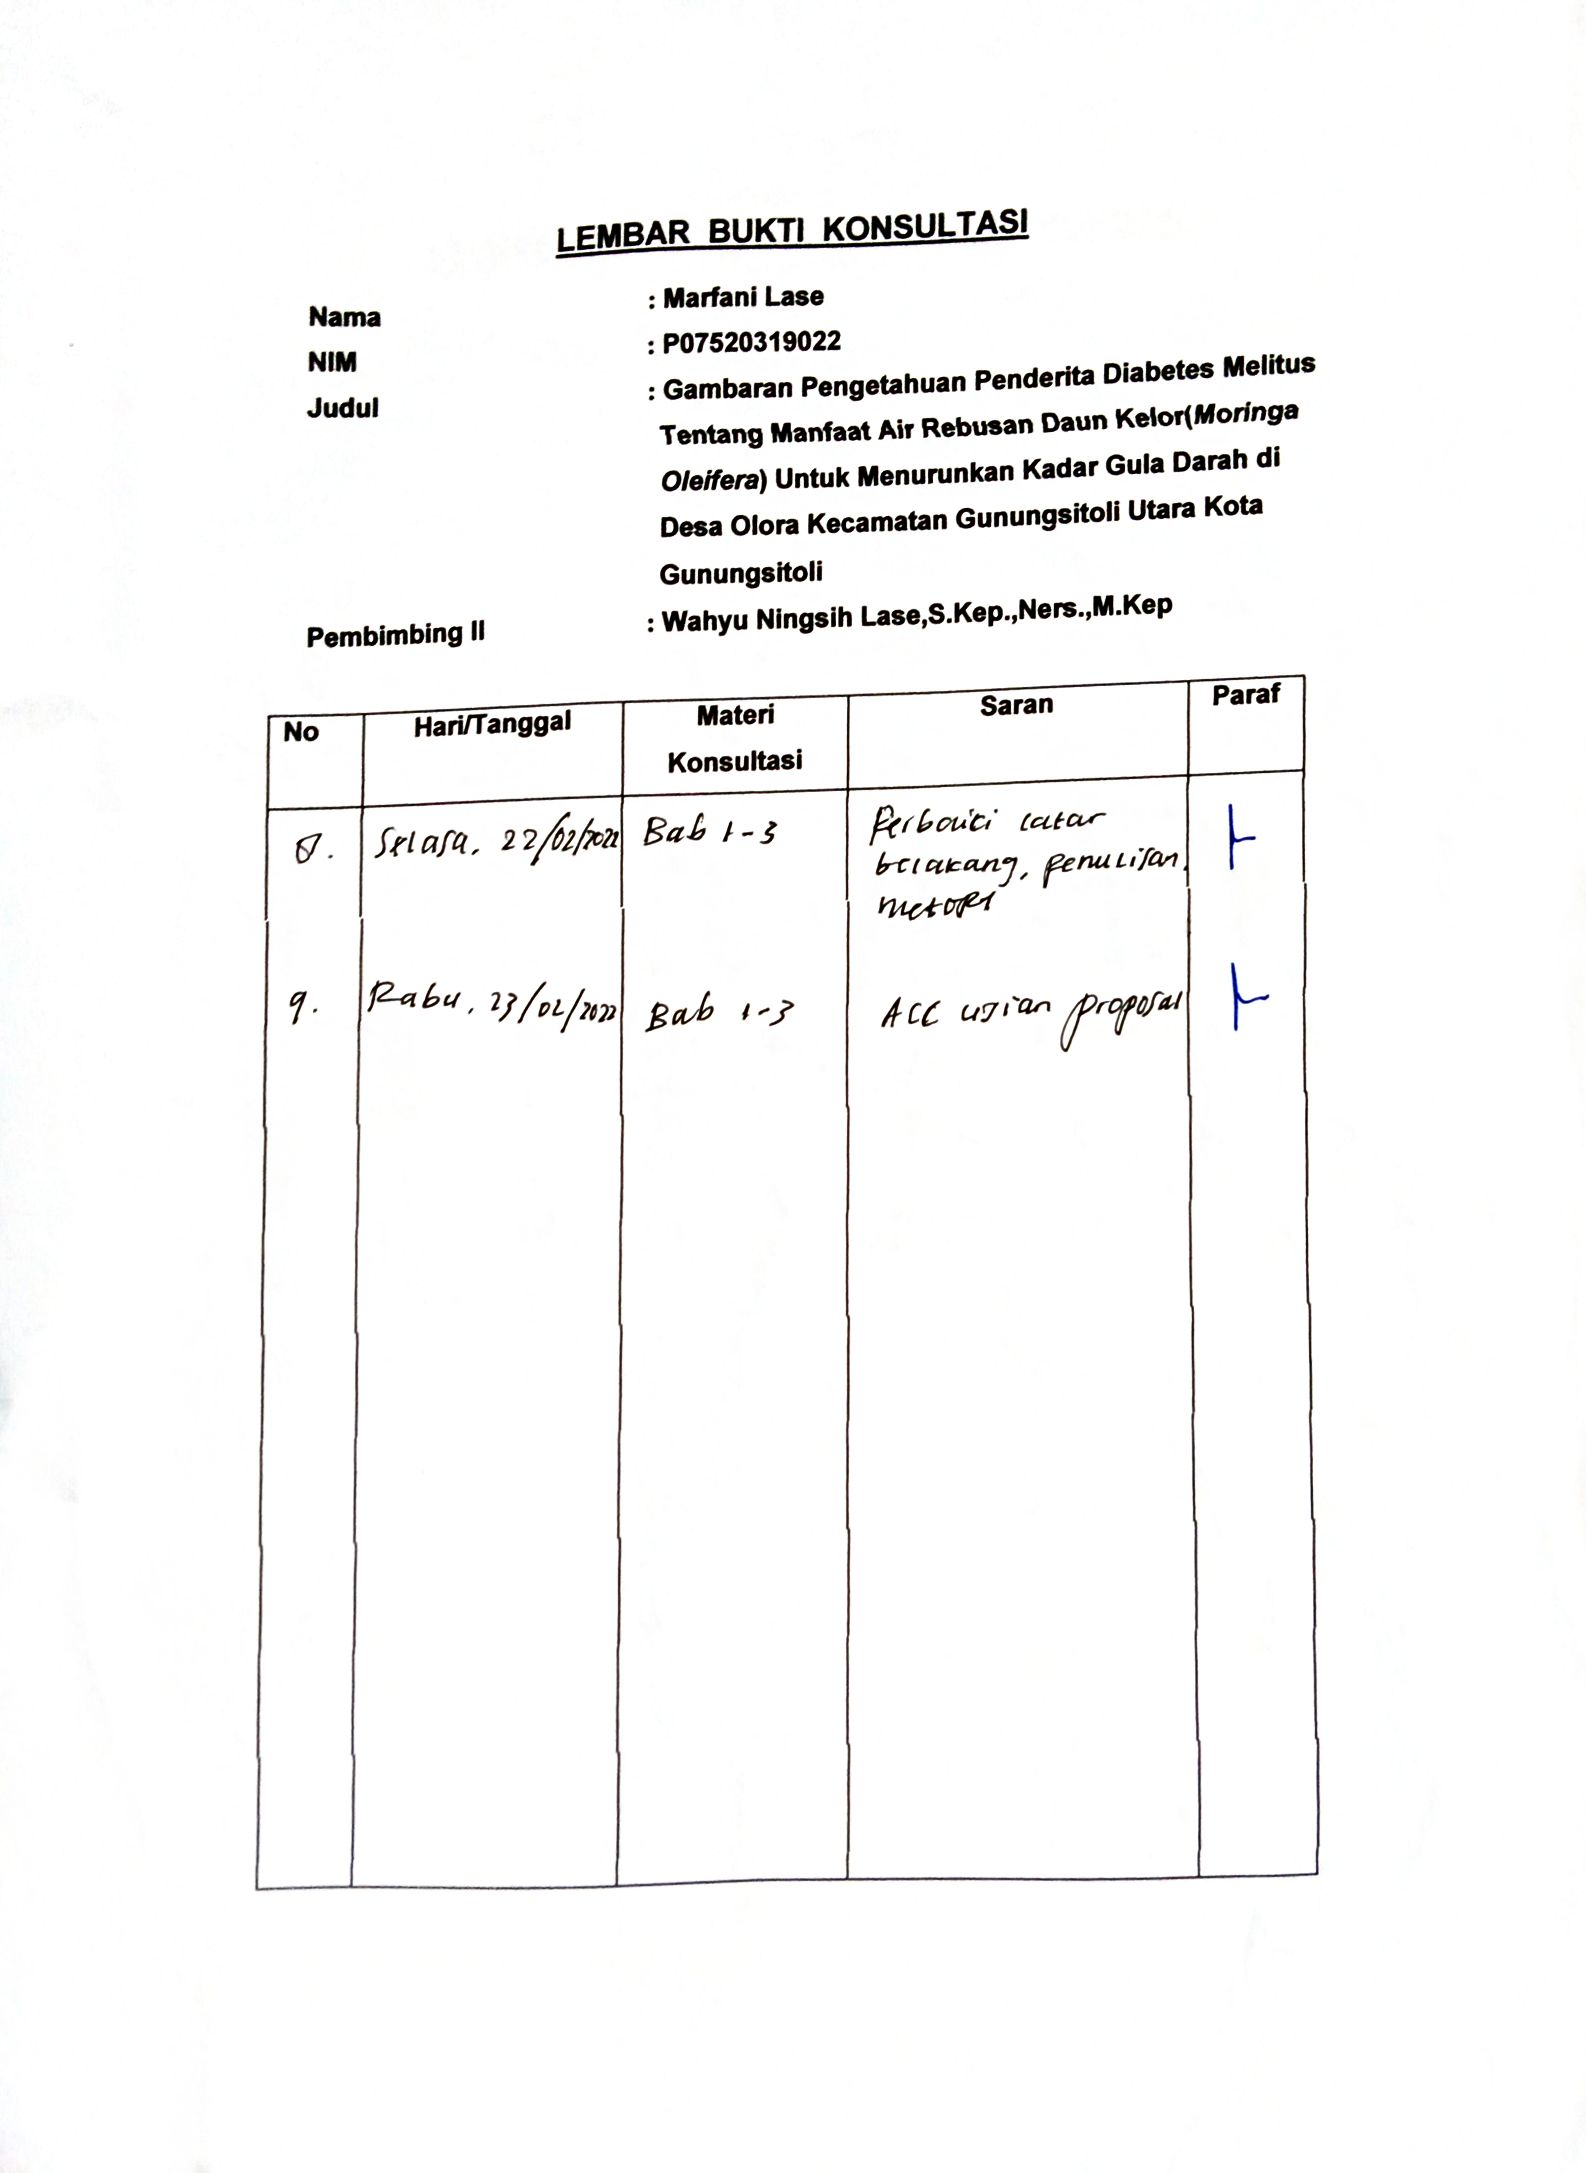 LEMBAR BUKTI KONSULTASI
Nama : Marfani Lase
NIM : P07520319022
Judul : Gambaran Pengetahuan Penderita Diabetes Melitus
Tentang Manfaat Air Rebusan Daun Kelor(Moringa
Oleifera) Untuk Menurunkan Kadar Gula Darah di
Desa Olora Kecamatan Gunungsitoli Utara Kota
Gunungsitoli
Pembimbing II : Wahyu Ningsih Lase,S.Kep.,Ners.,M.Kep
No Hari/Tanggal Materi Konsultasi Saran Paraf
8. Selasa, 22/02/2022 Bab 1-3 Perbaiki latar
belakang, penulisan,
9. Rabu, 23/02/2022 Bab 1-3 ACC ujian proposal